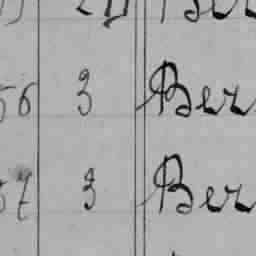 56 3 Ber
57 3 Ber